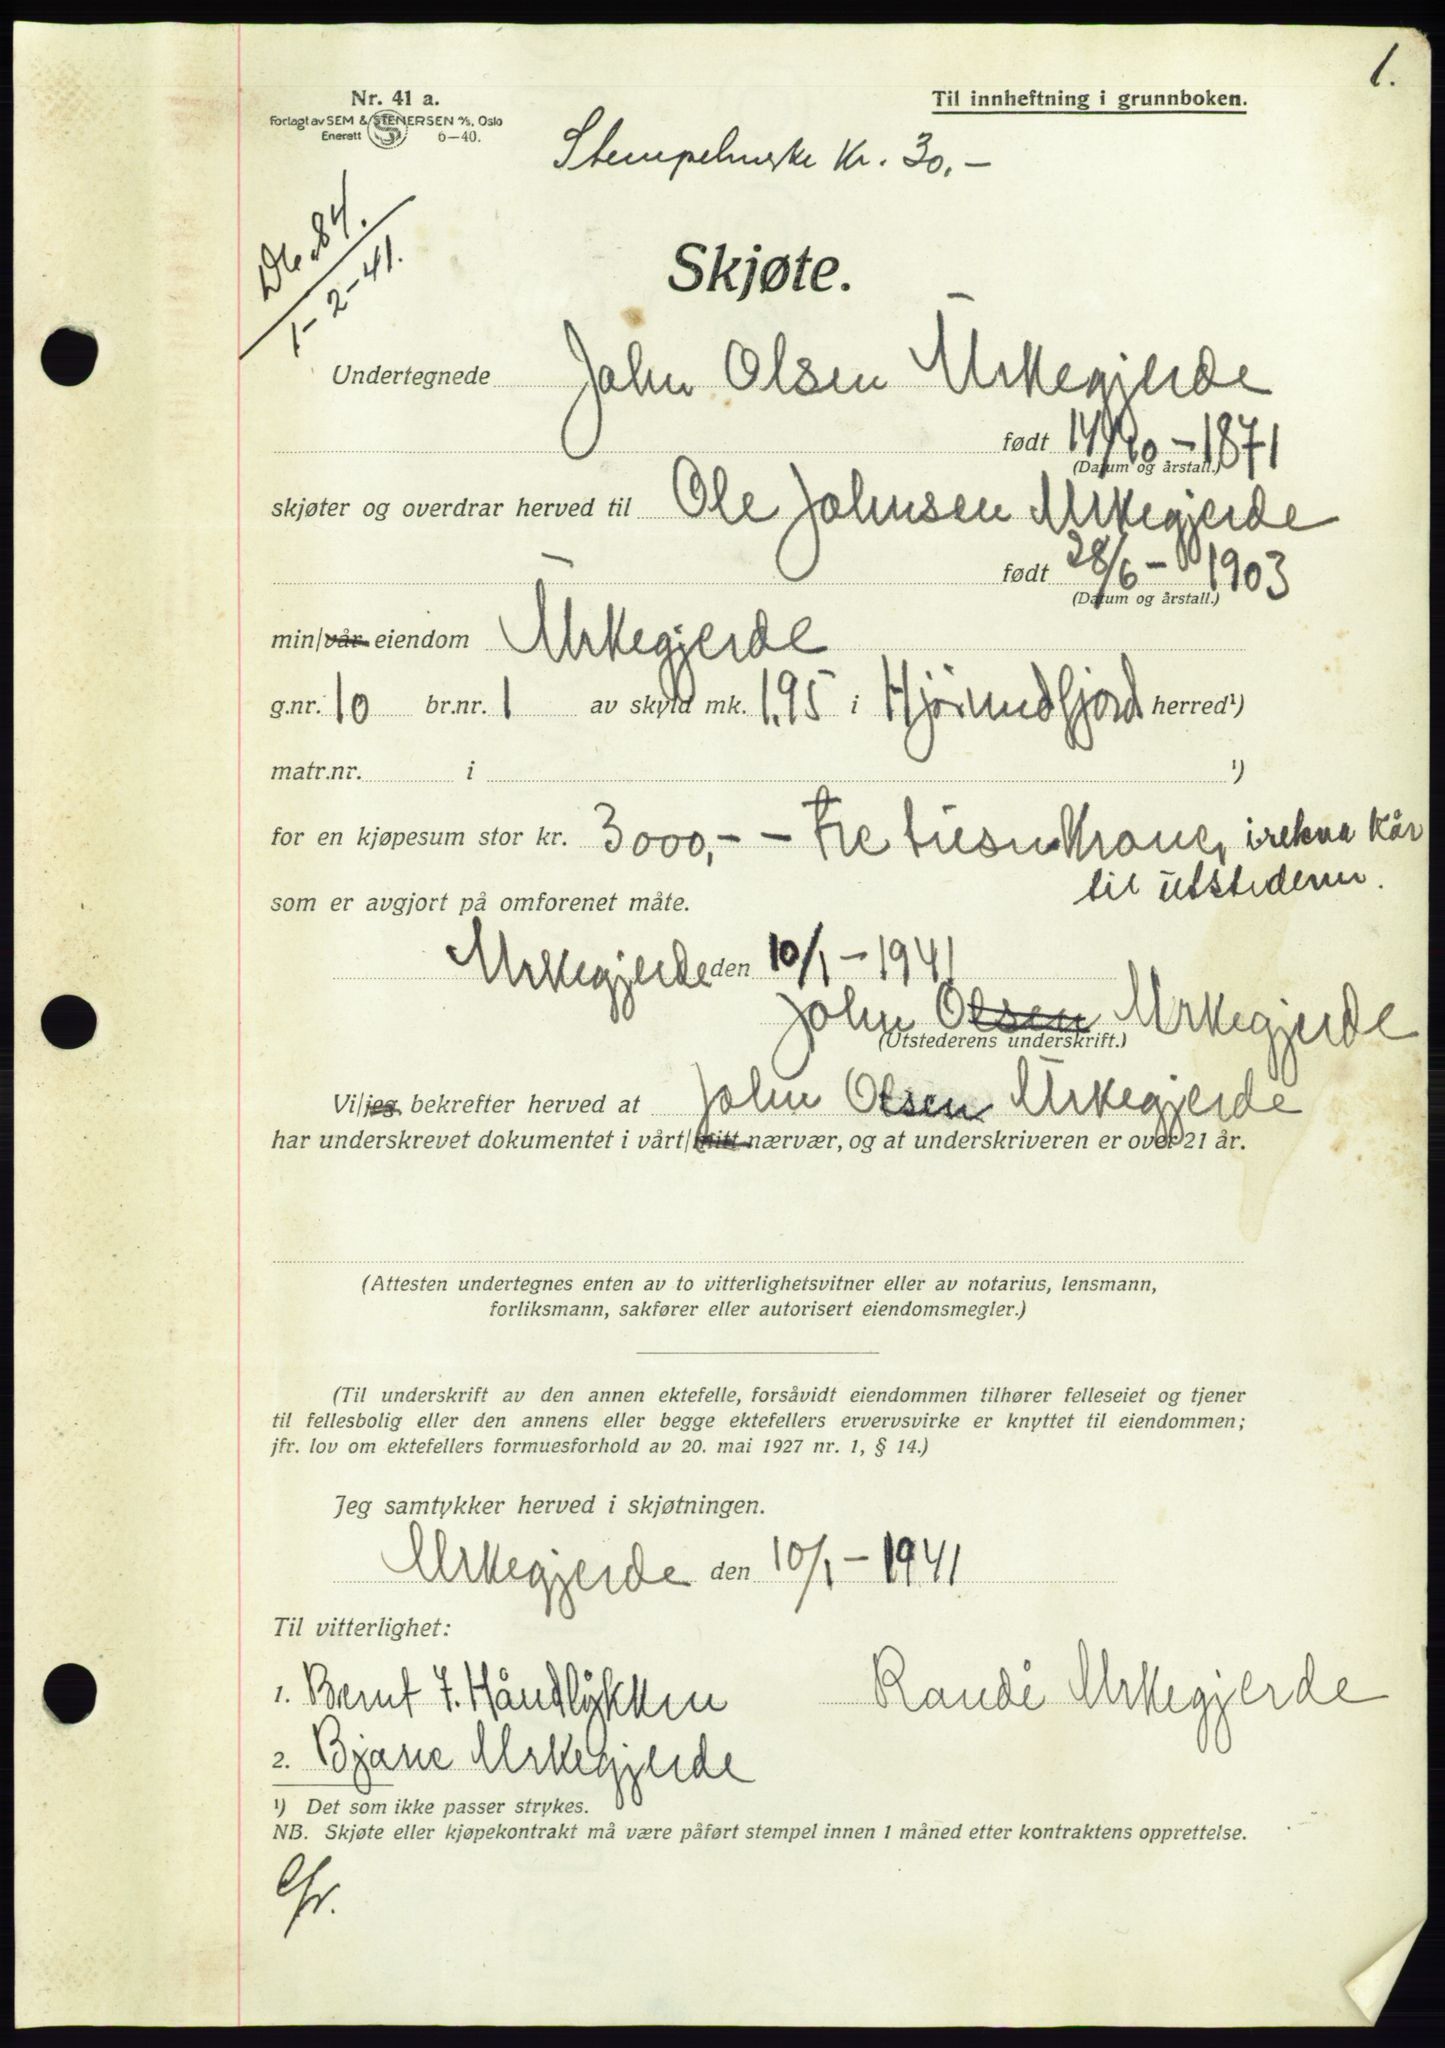 1.
Nr. 41 a.
Til innheftning i grunnboken.
Forlagt av SEM & STENERSEN A/S, Oslo
Enerett 6—40.
Stempelmerke kr. 30,-
84.
1-2-41.
Skjøte.
Undertegnede John Olsen Urkegjerde
født 14/10 - 1871
(Datum og årstall.)
skjøter og overdrar herved til Ole Johnsen Urkegjerde
født 28/6 - 1903
(Datum og årstall.)
min/vår eiendom Urkegjerde
g.nr. 10 br.nr. 1 av skyld mk. 1,95 i Hjørundfjord herred¹)
matr.nr. i ¹)
for en kjøpesum stor kr. 3000,- - Tre tusen krone, irekna kår
til utstederen.
som er avgjort på omforenet måte.
Urkegjerde den 10/1 - 1941
John Olsen Urkegjerde
(Utstederens underskrift.)
Vi/jeg bekrefter herved at John Olsen Urkegjerde
har underskrevet dokumentet i vårt/mitt nærvær, og at underskriveren er over 21 år.
(Attesten undertegnes enten av to vitterlighetsvitner eller av notarius, lensmann,
forliksmann, sakfører eller autorisert eiendomsmegler.)
(Til underskrift av den annen ektefelle, forsåvidt eiendommen tilhører felleseiet og tjener
til fellesbolig eller den annens eller begge ektefellers ervervsvirke er knyttet til eiendommen;
jfr. lov om ektefellers formuesforhold av 20. mai 1927 nr. 1, § 14.)
Jeg samtykker herved i skjøtningen.
Urkegjerde den 10/1 - 1941
Til vitterlighet:
1. Bernt J. Håndlykken Randi Urkegjerde
2. Bjarne Urkegjerde
¹) Det som ikke passer strykes.
NB. Skjøte eller kjøpekontrakt må være påført stempel innen 1 måned etter kontraktens opprettelse.